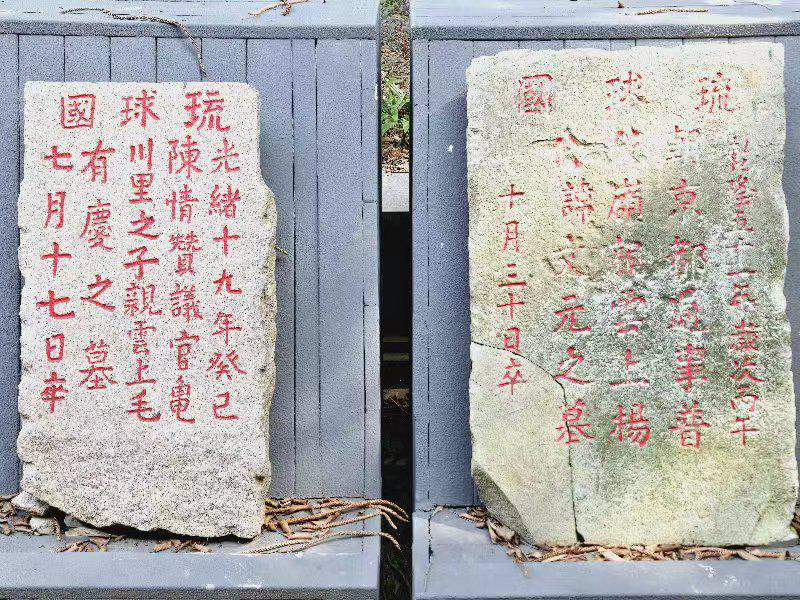 琉球國
光緒十九年癸巳
陳情贊議官龜
川里之子親雲上毛
有慶之墓
七月十七日卒
琉球國
乾隆五十一年歲次丙午
朝京都通事普
親雲上楊
公諱文元之墓
十月三十日卒